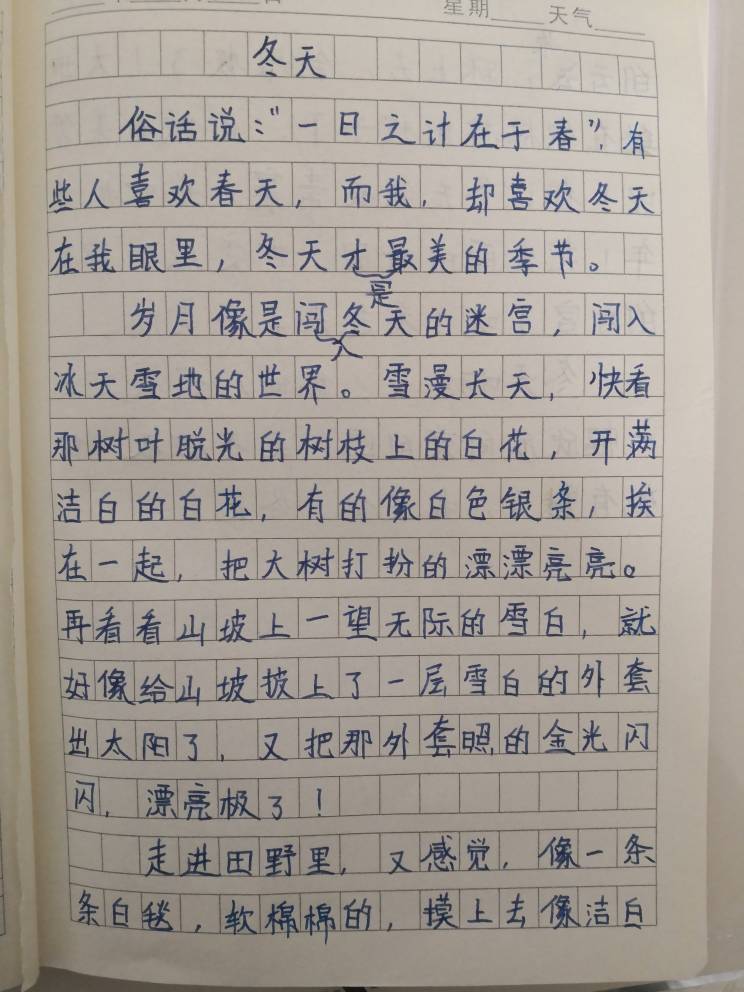 星期 天气
冬天
俗话说:“一日之计在于春”,有
些人喜欢春天,而我,却喜欢冬天
在我眼里,冬天才是最美的季节。
岁月像是闯入冬天的迷宫,闯入
冰天雪地的世界。雪漫长天,快看
那树叶脱光的树枝上的白花,开满
洁白的白花,有的像白色银条,挨
在一起,把大树打扮的漂漂亮亮。
再看看山坡上一望无际的雪白,就
好像给山坡披上了一层雪白的外套
出太阳了,又把那外套照的金光闪
闪,漂亮极了!
走进田野里,又感觉,像一条
条白毯,软棉棉的,摸上去像洁白